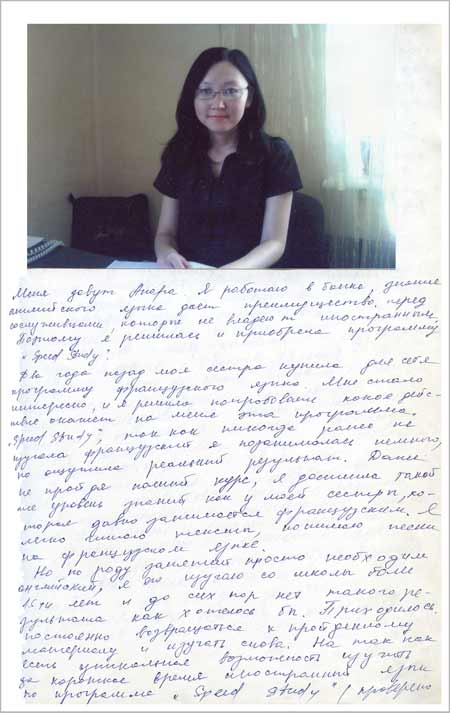 Меня зовут Анара. Я работаю в банке, знание
английского языка дает преимущество перед
сослуживцами, которые не владеют иностранным.
Поэтому я решилась и приобрела программу
"Speed Study".
Два года назад моя сестра купила для себя
программу французского языка. Мне стало
интересно, и я решила попробовать какое дейс-
твие окажет на меня эта программа
"Speed Study", так как никогда ранее не
изучала французский я позанималась немного,
но ощутила реальный результат. Даже
не пройдя полный курс, я достигла такой
же уровень знаний как у моей сестры, ко-
торая давно занимается французским. Я
легко читаю тексты, понимаю песни
на французском языке.
Но по роду занятий просто необходим
английский, я его изучаю со школы более
лет и до сих пор нет такого ре-
зультата как хотелось бы. Приходилось
постоянно возвращаться к пройденному
материалу и изучать снова. На так как
есть уникальная возможность изучить
за короткое время иностранный язык
по программе "Speed Study" (проверено